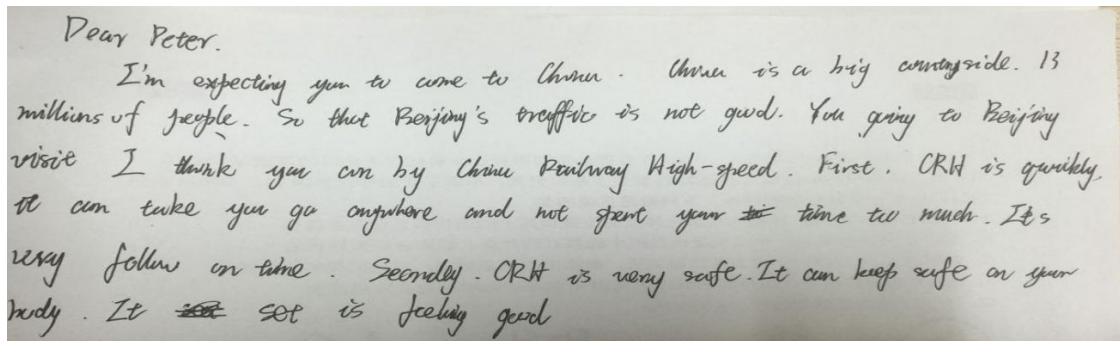 Dear Peter.
I'm expecting you to come to China. China is a big countryside. 13
millions of people. So that Beijing's traffic is not good. You going to Beijing
visit I think you can by China Railway High-speed. First. CRH is quickly.
it can take you go anywhere and not spent your time too much. It's
very follow on time. Secondly. CRH is very safe. It can keep safe on your
body. It set is feeling good